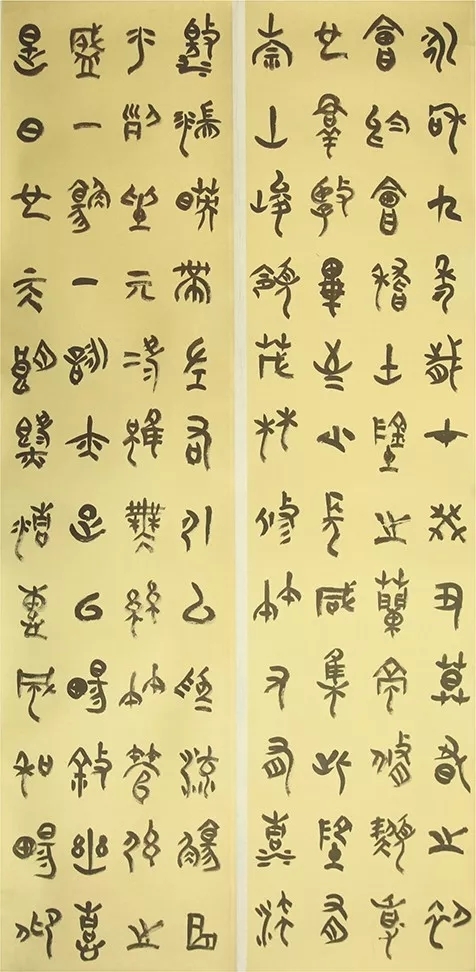 永和九年歲在癸丑莫春之初
會於會稽山陰之蘭亭脩禊事
也群賢畢至少長咸集此地有
崇山峻領茂林修竹又有清流
激湍映帶左右引以為流觴曲
水列坐其次雖無絲竹管弦之
盛一觴一詠亦足以暢敘幽情
是日也天朗氣清惠風和暢仰